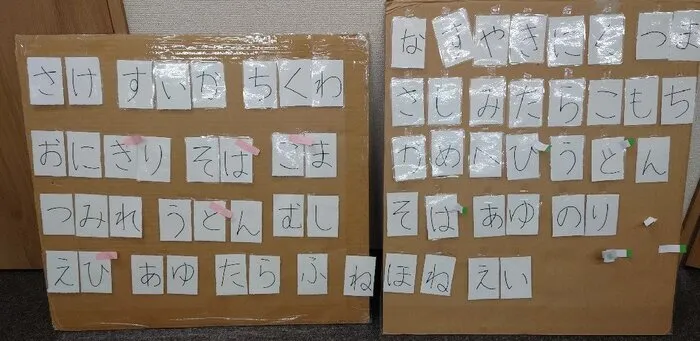 さけ すいか ちくわ
おにきり そは こま
つみれ うとん むし
えひ あゆ たら ふね
なす やきにく つま
さしみ たら こもち
かめ へひ うとん
そは あゆ のり
ほね えい